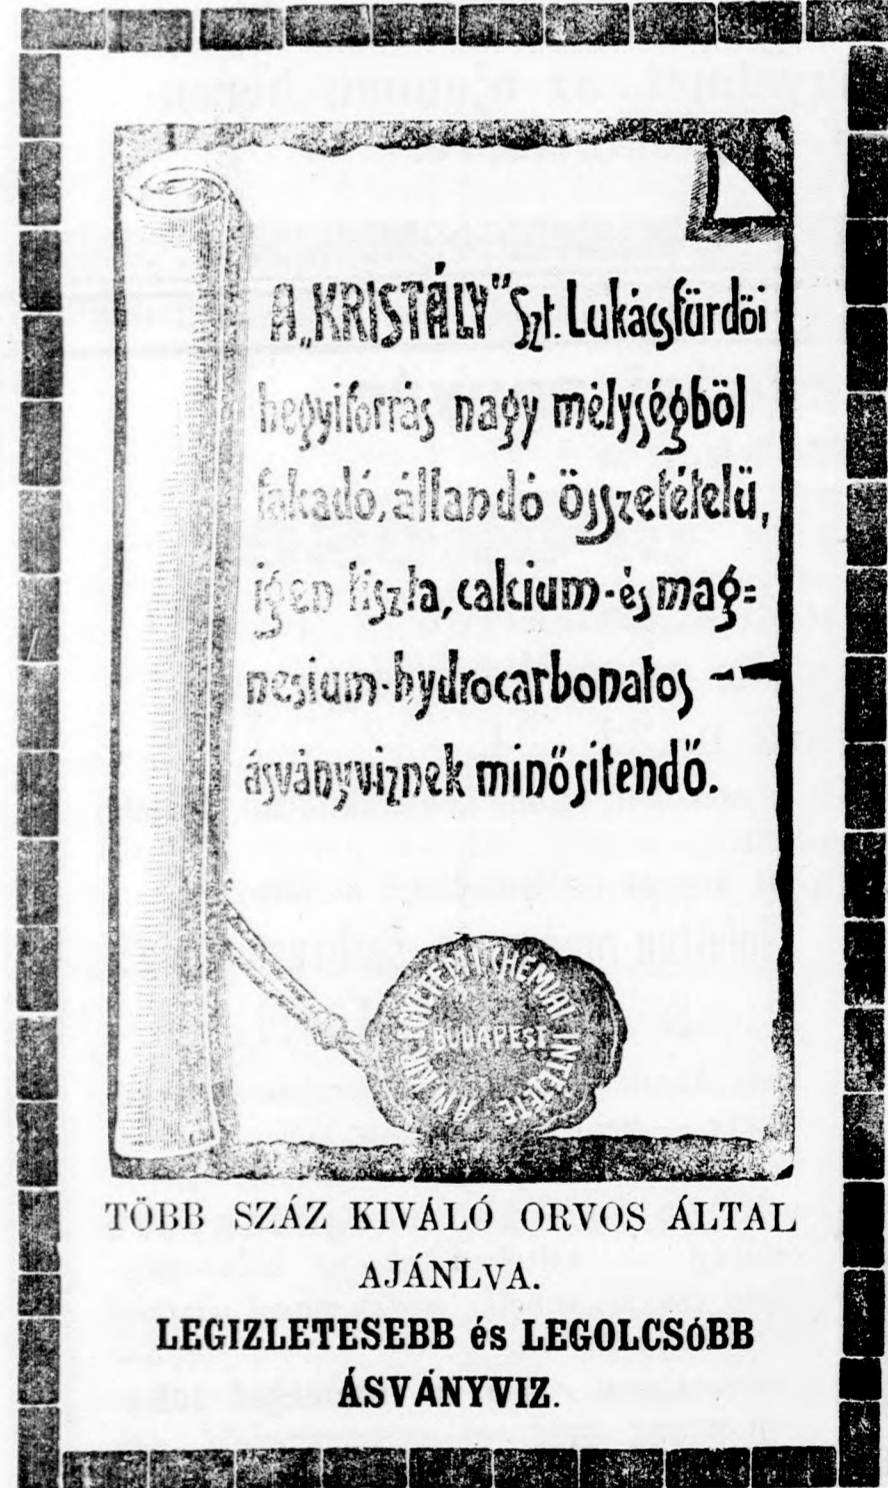 A „KRISTÁLY" Szt. Lukácsfürdöi
hegyiforrás nagy mélységböl
fakadó, állandó összetételü,
igen tiszta, calcium- és mag=
nesium-hydrocarbonatos
ásványviznek minősitendő.
A M. KIR. EGYETEMI KHEMIAI INTÉZETE
BUDAPEST
TÖBB SZÁZ KIVÁLÓ ORVOS ÁLTAL
AJÁNLVA.
LEGIZLETESEBB és LEGOLCSÓBB
ÁSVÁNYVIZ.